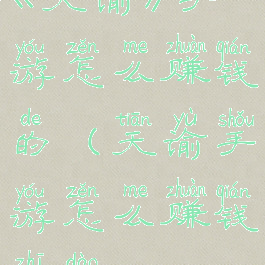 《天谕》手
yóu zěn me zhuàn qián
游怎么赚钱
de tiān yù shǒu
的(天谕手
yóu zěn me zhuàn qián
游怎么赚钱
zhī dào